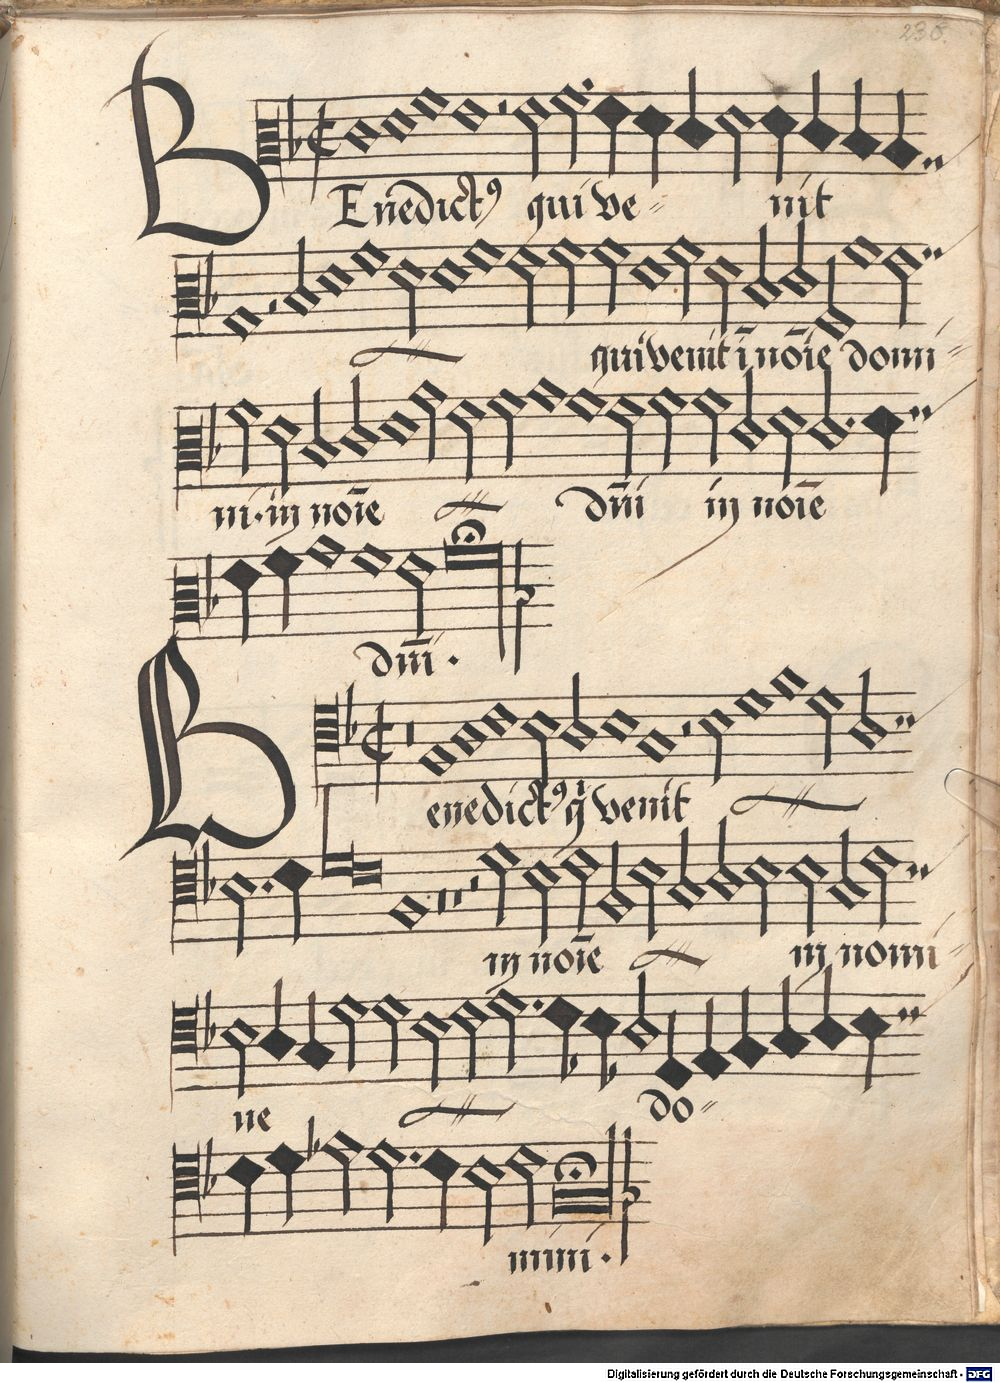 236.
BEnedictꝰ qui ve= nit
qui venit ī nōīe domi=
ni. in nōīe dn̄i in nōīe
dn̄i.
Benedictꝰ q venit
in nōīe in nomi=
ne do=
mini.
Digitalisierung gefördert durch die Deutsche Forschungsgemeinschaft - DFG